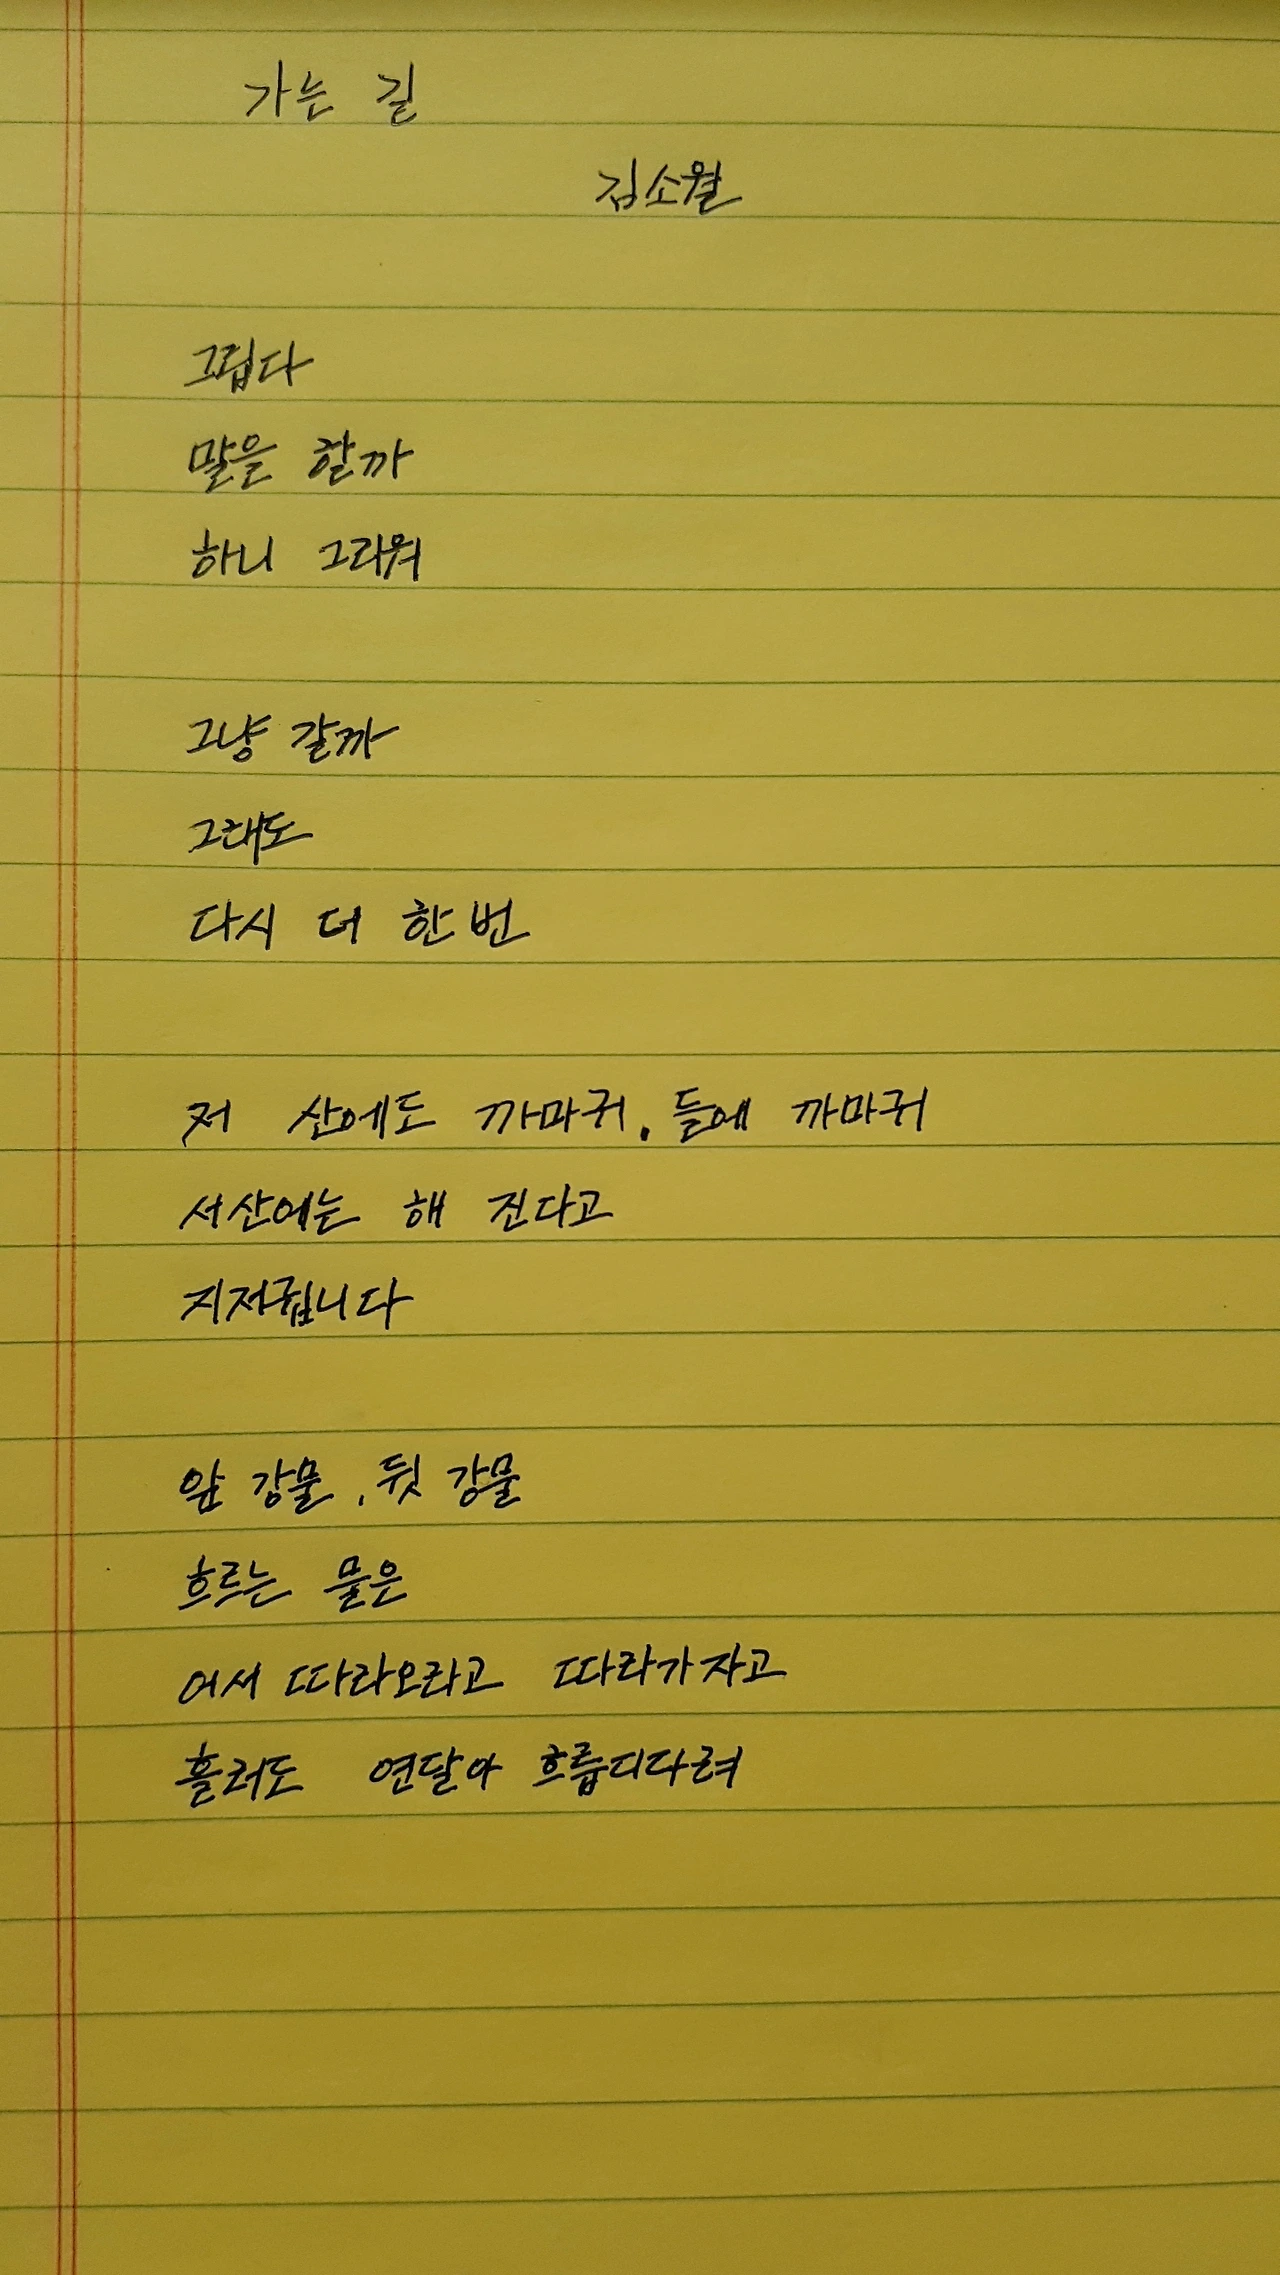 가는 길
김소월
그립다
말을 할까
하니 그리워
그냥 갈까
그래도
다시 더 한 번
저 산에도 까마귀. 들에 까마귀
서산에는 해 진다고
지저귑니다
앞 강물, 뒷 강물
흐르는 물은
어서 따라오라고 따라가자고
흘러도 연달아 흐릅디다려